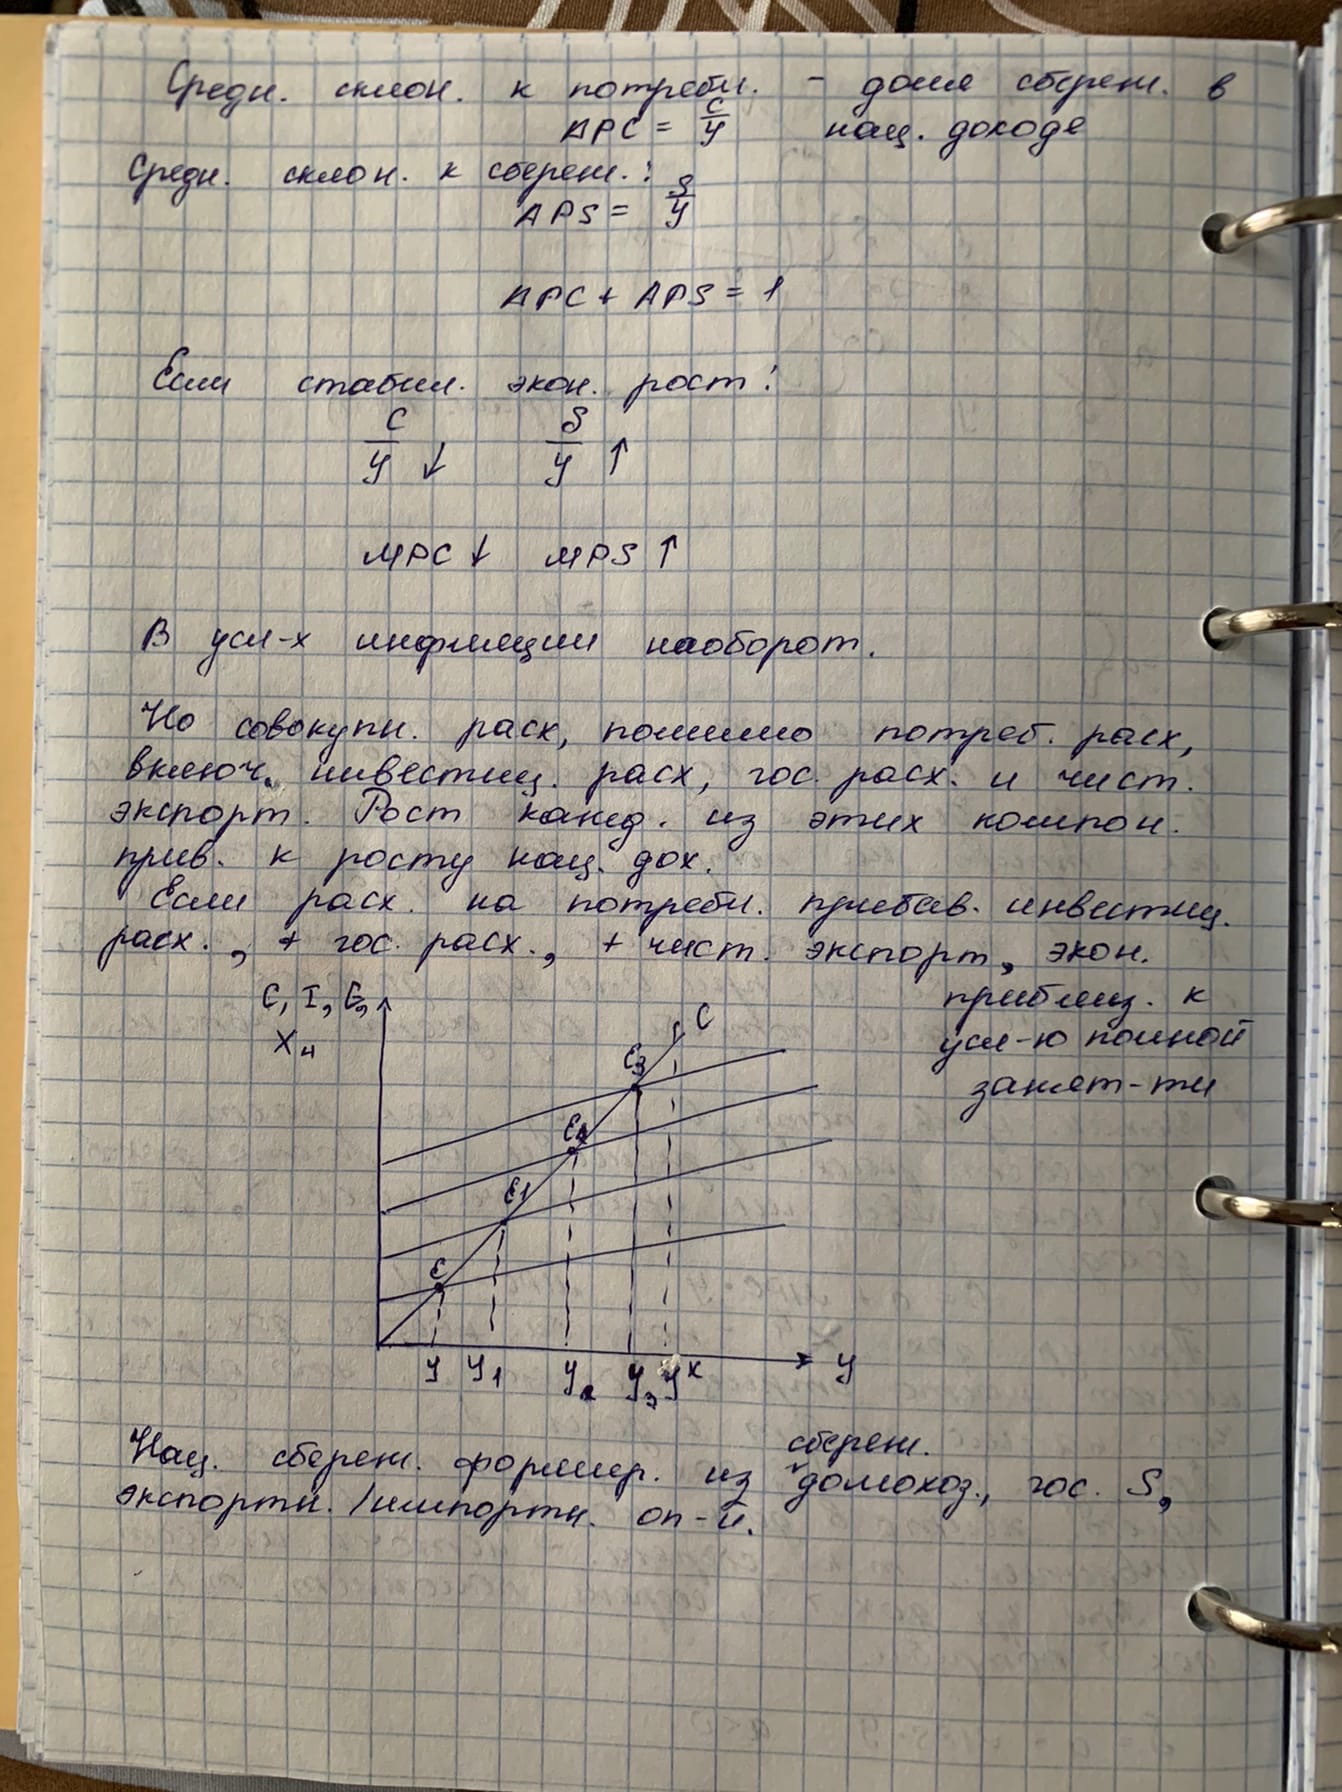 Средн. склон. к потребл. - доля сбереж. в
APC = C/Y нац. доходе
Средн. склон. к сбереж.:
APS = S/Y
APC + APS = 1
Если стабил. экон. рост:
C/Y ↓ S/Y ↑
MPC ↓ MPS ↑
В усл-х инфляции наоборот.
Но совокупн. расх, помимо потреб. расх,
включ. инвестиц. расх, гос. расх. и чист.
экспорт. Рост кажд. из этих компон.
прив. к росту нац. дох.
Если расх. на потребл. прибав. инвестиц.
расх., + гос. расх., + чист. экспорт, экон.
приближ. к
усл-ю полной
занят-ти
C, I, G,
Xн
C
E3
E2
E1
E
Y Y1 Y2 Y3 Y* Y
Нац. сбереж. формир. из сбереж. домохоз., гос. S,
экспортн./импортн. оп-й.